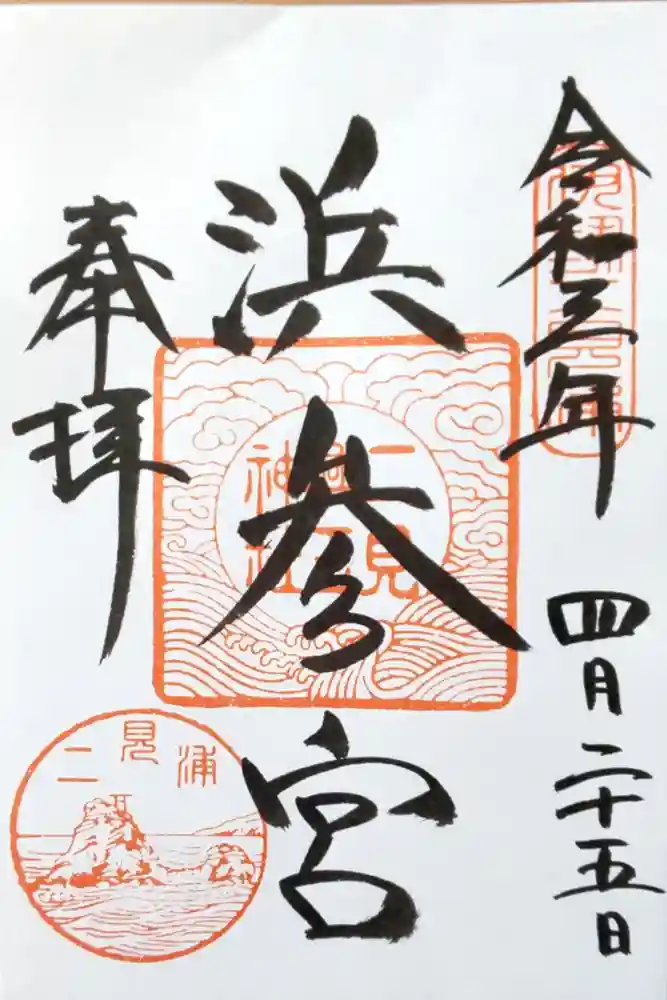 令和三年 四月二十五日
浜参宮
奉拝
二見興玉神社
二見浦